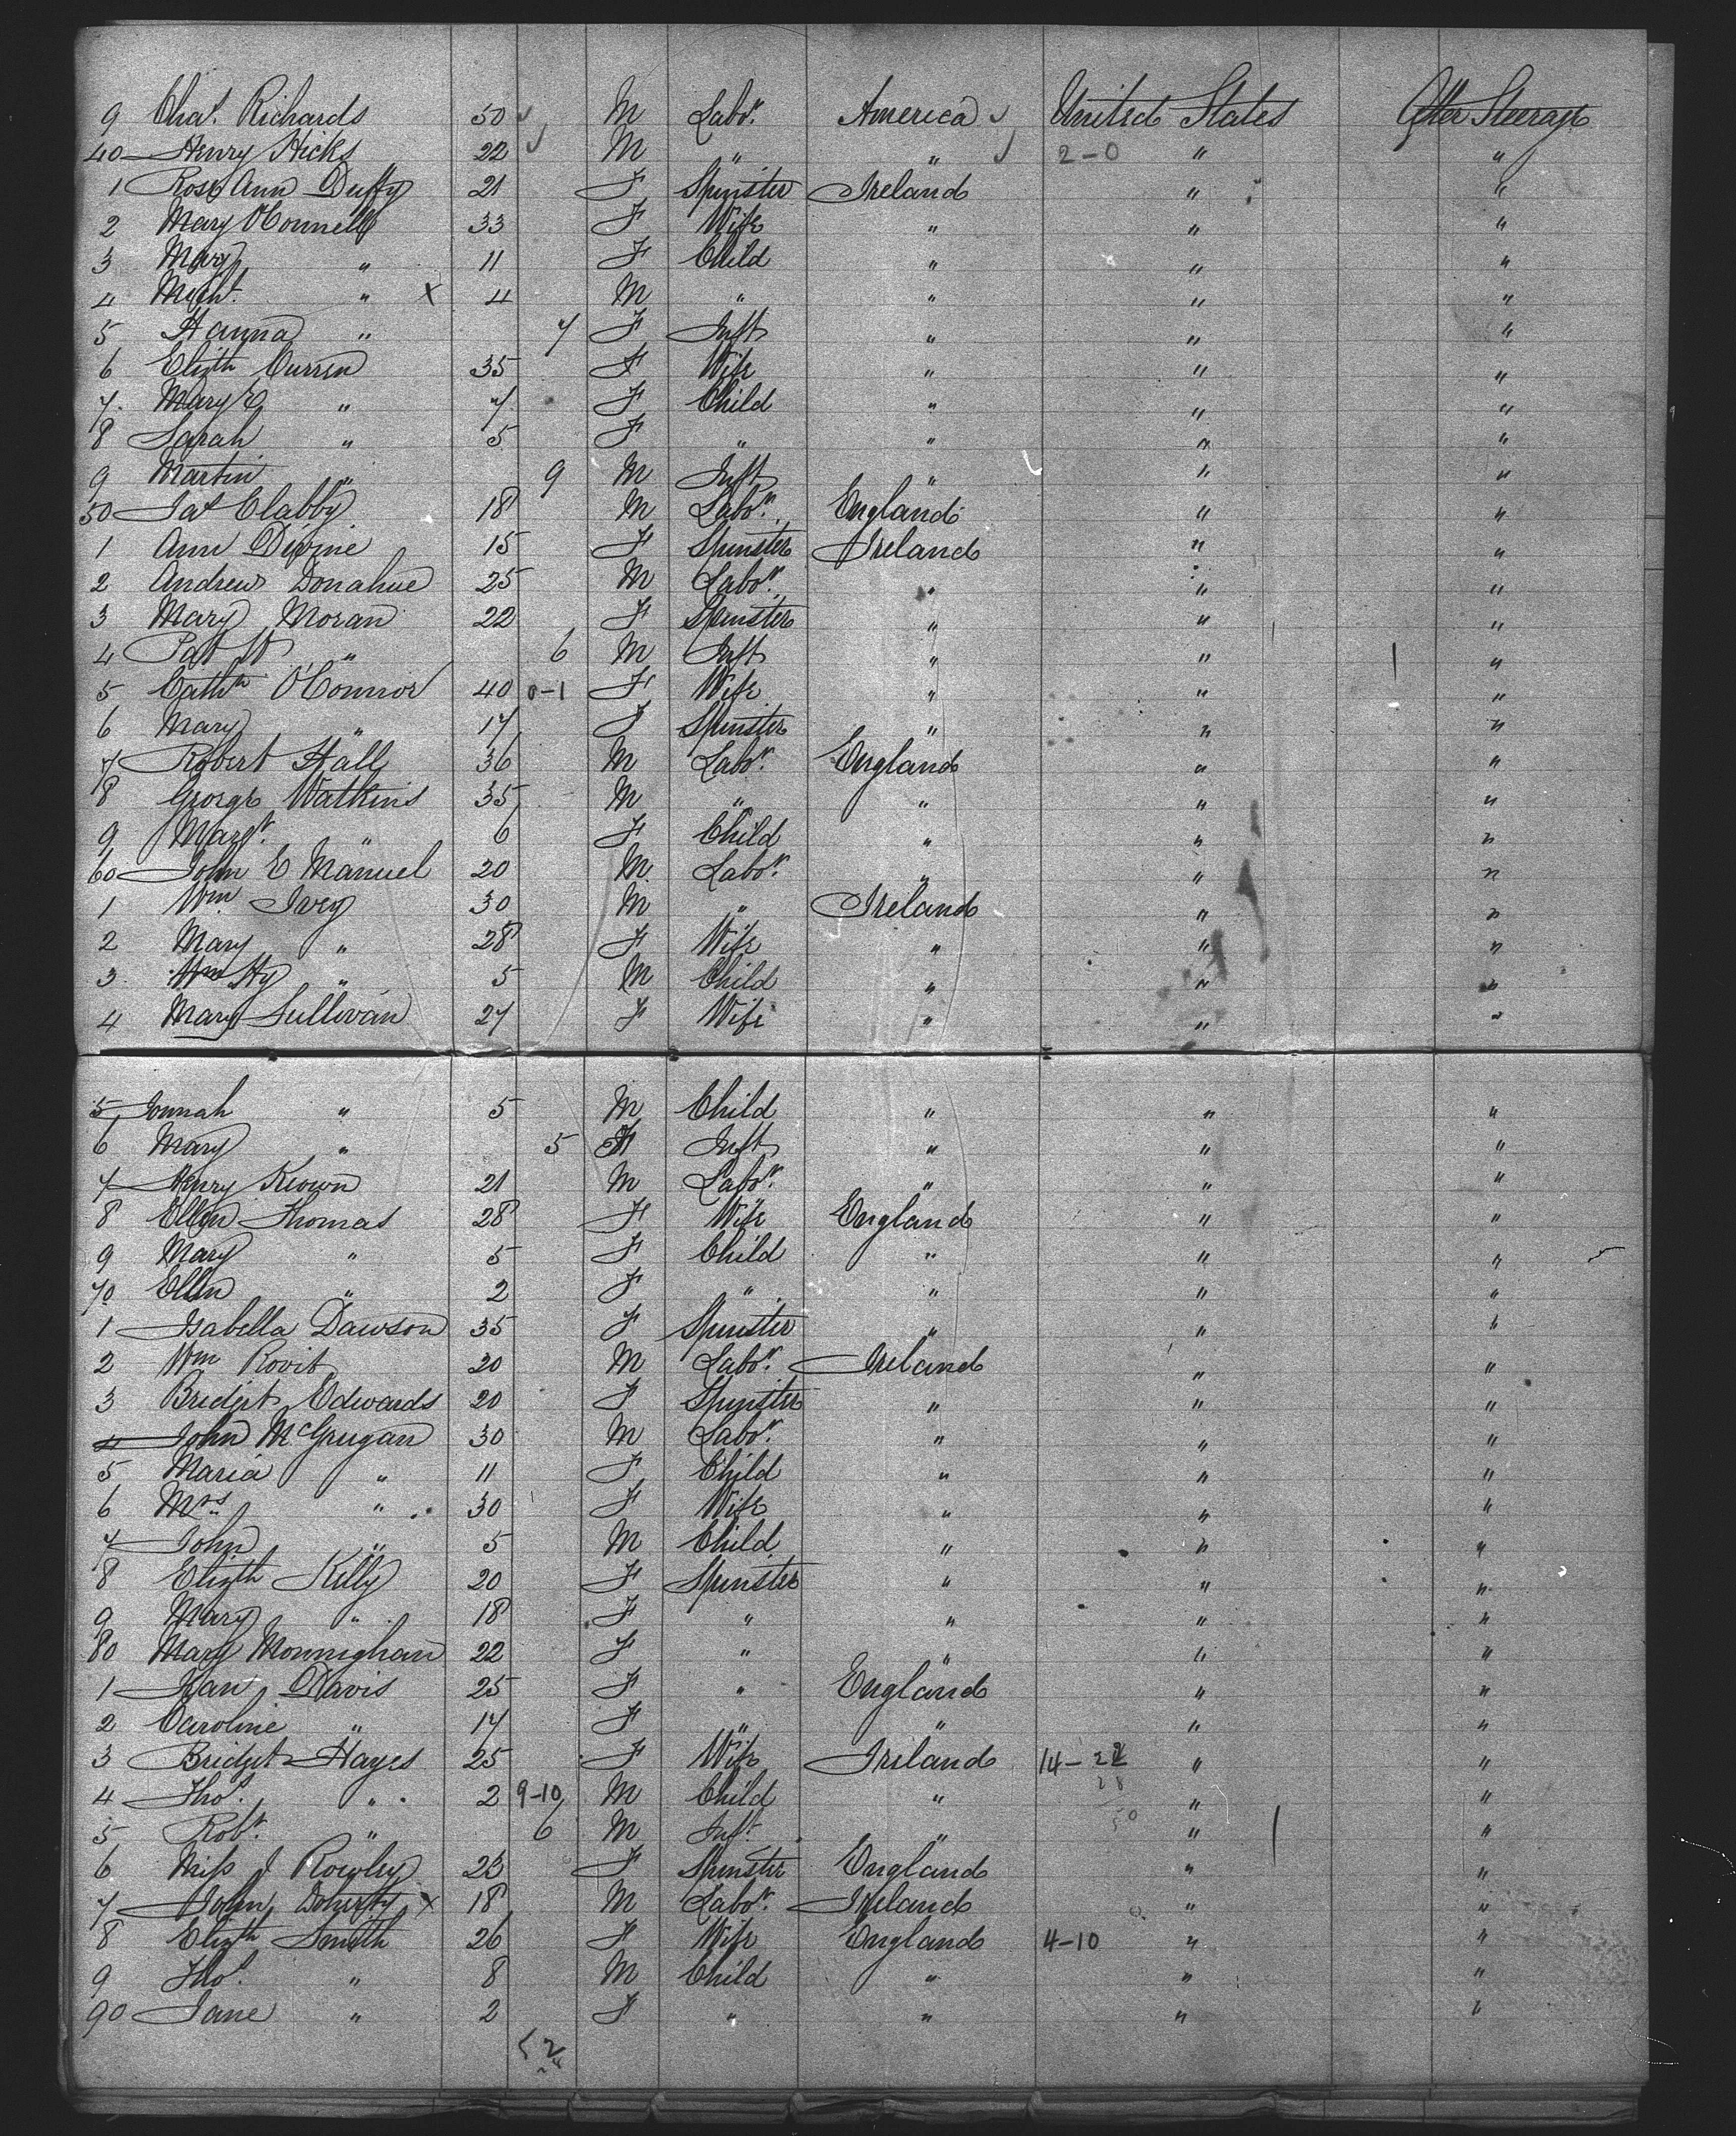 9 Chas. Richards 50 M Labr. America United States After Steerage
40 Henry Hicks 22 M " " 2-0 " "
1 Rose Ann Duffy 21 F Spinster Ireland " "
2 Mary O'Connell 33 F Wife " " "
3 Mary " 11 F Child " " "
4 Michl. " X 4 M " " " "
5 Hanna " 7 F Inft " " "
6 Elizth Curren 35 F Wife " " "
7 Mary E " 7 F Child " " "
8 Sarah " 5 F " " " "
9 Martin " 9 M Inft " " "
50 Jas Clabby 18 M Labr. England " "
1 Ann Devine 15 F Spinster Ireland " "
2 Andrew Donahue 25 M Labr. " " "
3 Mary Moran 22 F Spinster " " "
4 Pat " 6 M Inft " " "
5 Cathn O'Connor 40 0-1 F Wife " " "
6 Mary " 17 F Spinster " " "
7 Robert Hall 36 M Labr. England " "
8 George Watkins 35 M " " " "
9 Margt. " 6 F Child " " "
60 John E Manuel 20 M Labr. " " "
1 Wm Ivey 30 M " Ireland " "
2 Mary " 28 F Wife " " "
3 Wm Hy " 5 M Child " " "
4 Mary Sullivan 27 F Wife " " "
5 " 5 M Child " " "
6 Mary " 5 F Inft " " "
7 Henry Keown 21 M Labr. " " "
8 Ellen Thomas 28 F Wife England " "
9 Mary " 5 F Child " " "
70 Ellen " 2 F " " " "
1 Isabella Dawson 35 F Spinster " " "
2 Wm Rovit 20 M Labr. Ireland " "
3 Bridget Edwards 20 F Spinster " " "
4 John McGrugan 30 M Labr. " " "
5 Maria " 11 F Child " " "
6 Mrs " 30 F Wife " " "
7 John " 5 M Child " " "
8 Elizth Kelly 20 F Spinster " " "
9 Mary " 18 F " " " "
80 Mary Monnighan 22 F " " " "
1 Davis 25 F " England " "
2 Caroline " 17 F " " " "
3 Bridget Hayes 25 F Wife Ireland 14- " "
4 Thos. " 2 9-10 M Child " " "
5 Robt. " 6 M Inft " " "
6 Miss J Rowley 23 F Spinster England " "
7 John Doherty X 18 M Labr. Ireland " "
8 Elizth Smith 26 F Wife England 4-10 " "
9 Thos. " 8 M Child " " "
90 Jane " 2 F " " " "